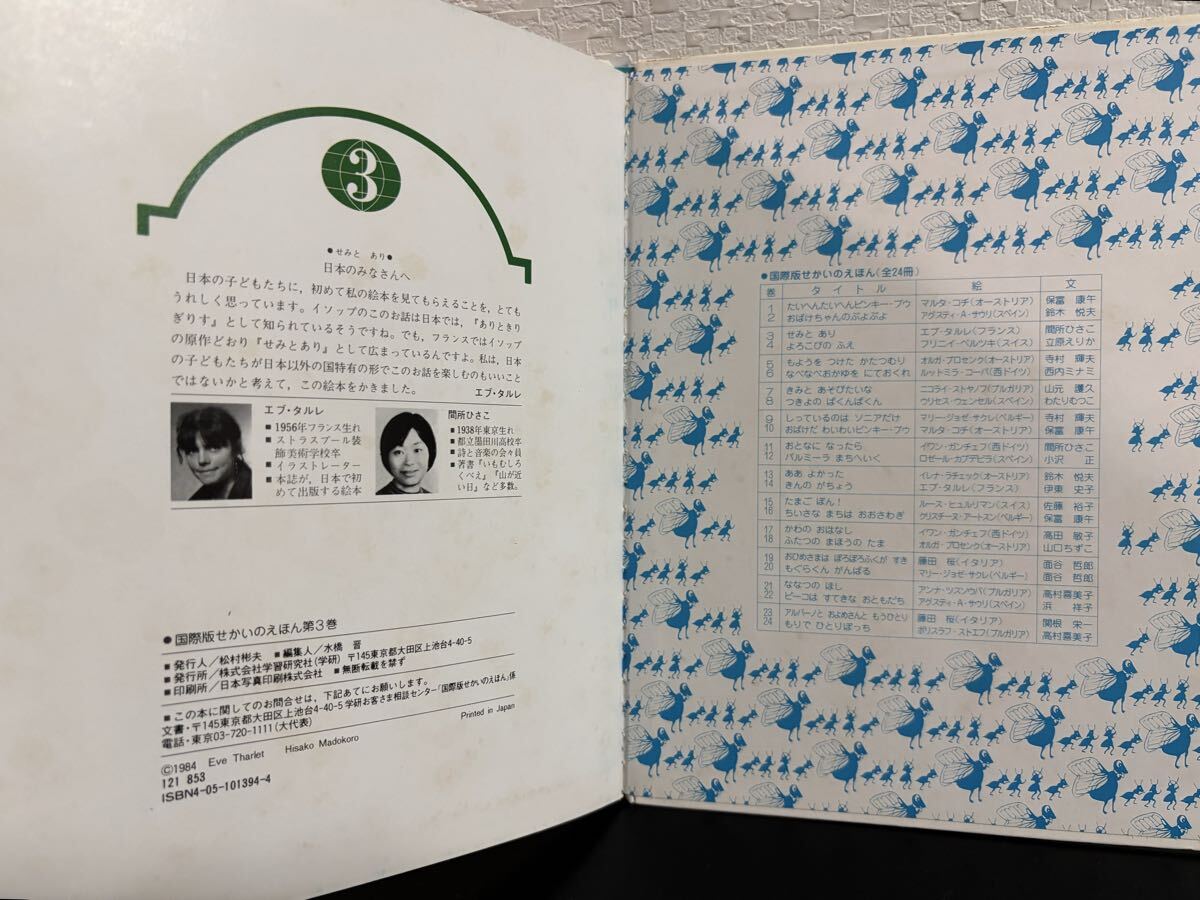 3
●せみと あり●
日本のみなさんへ
日本の子どもたちに，初めて私の絵本を見てもらえることを，とても
うれしく思っています。イソップのこのお話は日本では，『ありときり
ぎりす』として知られているそうですね。でも，フランスではイソップ
の原作どおり『せみとあり』として広まっているんですよ。私は，日本
の子どもたちが日本以外の国特有の形でこのお話を楽しむのもいいこと
ではないかと考えて，この絵本をかきました。 エブ・タルレ
エブ・タルレ
■1956年フランス生れ
■ストラスブール装
飾美術学校卒
■イラストレーター
■本誌が，日本で初
めて出版する絵本
間所ひさこ
■1938年東京生れ
■都立墨田川高校卒
■詩と音楽の会々員
■著書『いもむしろ
くべえ』『山が近
い日』など多数。
●国際版せかいのえほん第3巻
■発行人／松村彬夫 ■編集人／水橋 晋
■発行所／株式会社学習研究社(学研) 〒145東京都大田区上池台4-40-5
■印刷所／日本写真印刷株式会社 ■無断転載を禁ず
■この本に関してのお問合せは，下記あてにお願いします。
文書・〒145東京都大田区上池台4-40-5学研お客さま相談センター「国際版せかいのえほん」係
電話・東京03-720-1111(大代表)
Printed in Japan
©1984 Eve Tharlet Hisako Madokoro
121 853
ISBN4-05-101394-4
●国際版せかいのえほん(全24冊)
巻 タイトル 絵 文
1 たいへんたいへんピンキー・ブウ マルタ・コチ(オーストリア) 保富 康午
2 おばけちゃんのぷよぷよ アグスティ・A・サウリ(スペイン) 鈴木 悦夫
3 せみと あり エブ・タルレ(フランス) 間所ひさこ
4 よろこびの ふえ フリニイ・ベルツキ(スイス) 立原えりか
5 もようを つけた かたつむり オルガ・プロセンク(オーストリア) 寺村 輝夫
6 なべなべおかゆを にておくれ ルットミラ・コーバ(西ドイツ) 西内ミナミ
7 きみと あそびたいな ニコライ・ストヤノフ(ブルガリア) 山元 護久
8 つきよの ぱくんぱくん ウリセス・ウェンセル(スペイン) わたりむつこ
9 しっているのは ソニアだけ マリー・ジョゼ・サクレ(ベルギー) 寺村 輝夫
10 おばけだ わいわいピンキー・ブウ マルタ・コチ(オーストリア) 保富 康午
11 おとなに なったら イワン・ガンチェフ(西ドイツ) 間所ひさこ
12 パルミーラ まちへいく ロゼール・カプデビラ(スペイン) 小沢 正
13 ああ よかった イレナ・ラチェック(オーストリア) 鈴木 悦夫
14 きんの がちょう エブ・タルレ(フランス) 伊東 史子
15 たまご ぽん！ ルース・ヒュルリマン(スイス) 佐藤 裕子
16 ちいさな まちは おおさわぎ クリスチーヌ・アートスン(ベルギー) 保富 康午
17 かわの おはなし イワン・ガンチェフ(西ドイツ) 高田 敏子
18 ふたつの まほうの たま オルガ・プロセンク(オーストリア) 山口ちずこ
19 おひめさまは ぼろぼろふくが すき 藤田 桜(イタリア) 面谷 哲郎
20 もぐらくん がんばる マリー・ジョゼ・サクレ(ベルギー) 面谷 哲郎
21 ななつの ほし アンナ・ツスソウバ(ブルガリア) 高村喜美子
22 ピーコは すてきな おともだち アグスティ・A・サウリ(スペイン) 浜 祥子
23 アルバーノと およめさんと もうひとり 藤田 桜(イタリア) 関根 栄一
24 もりで ひとりぼっち ボリスラフ・ストエフ(ブルガリア) 高村喜美子